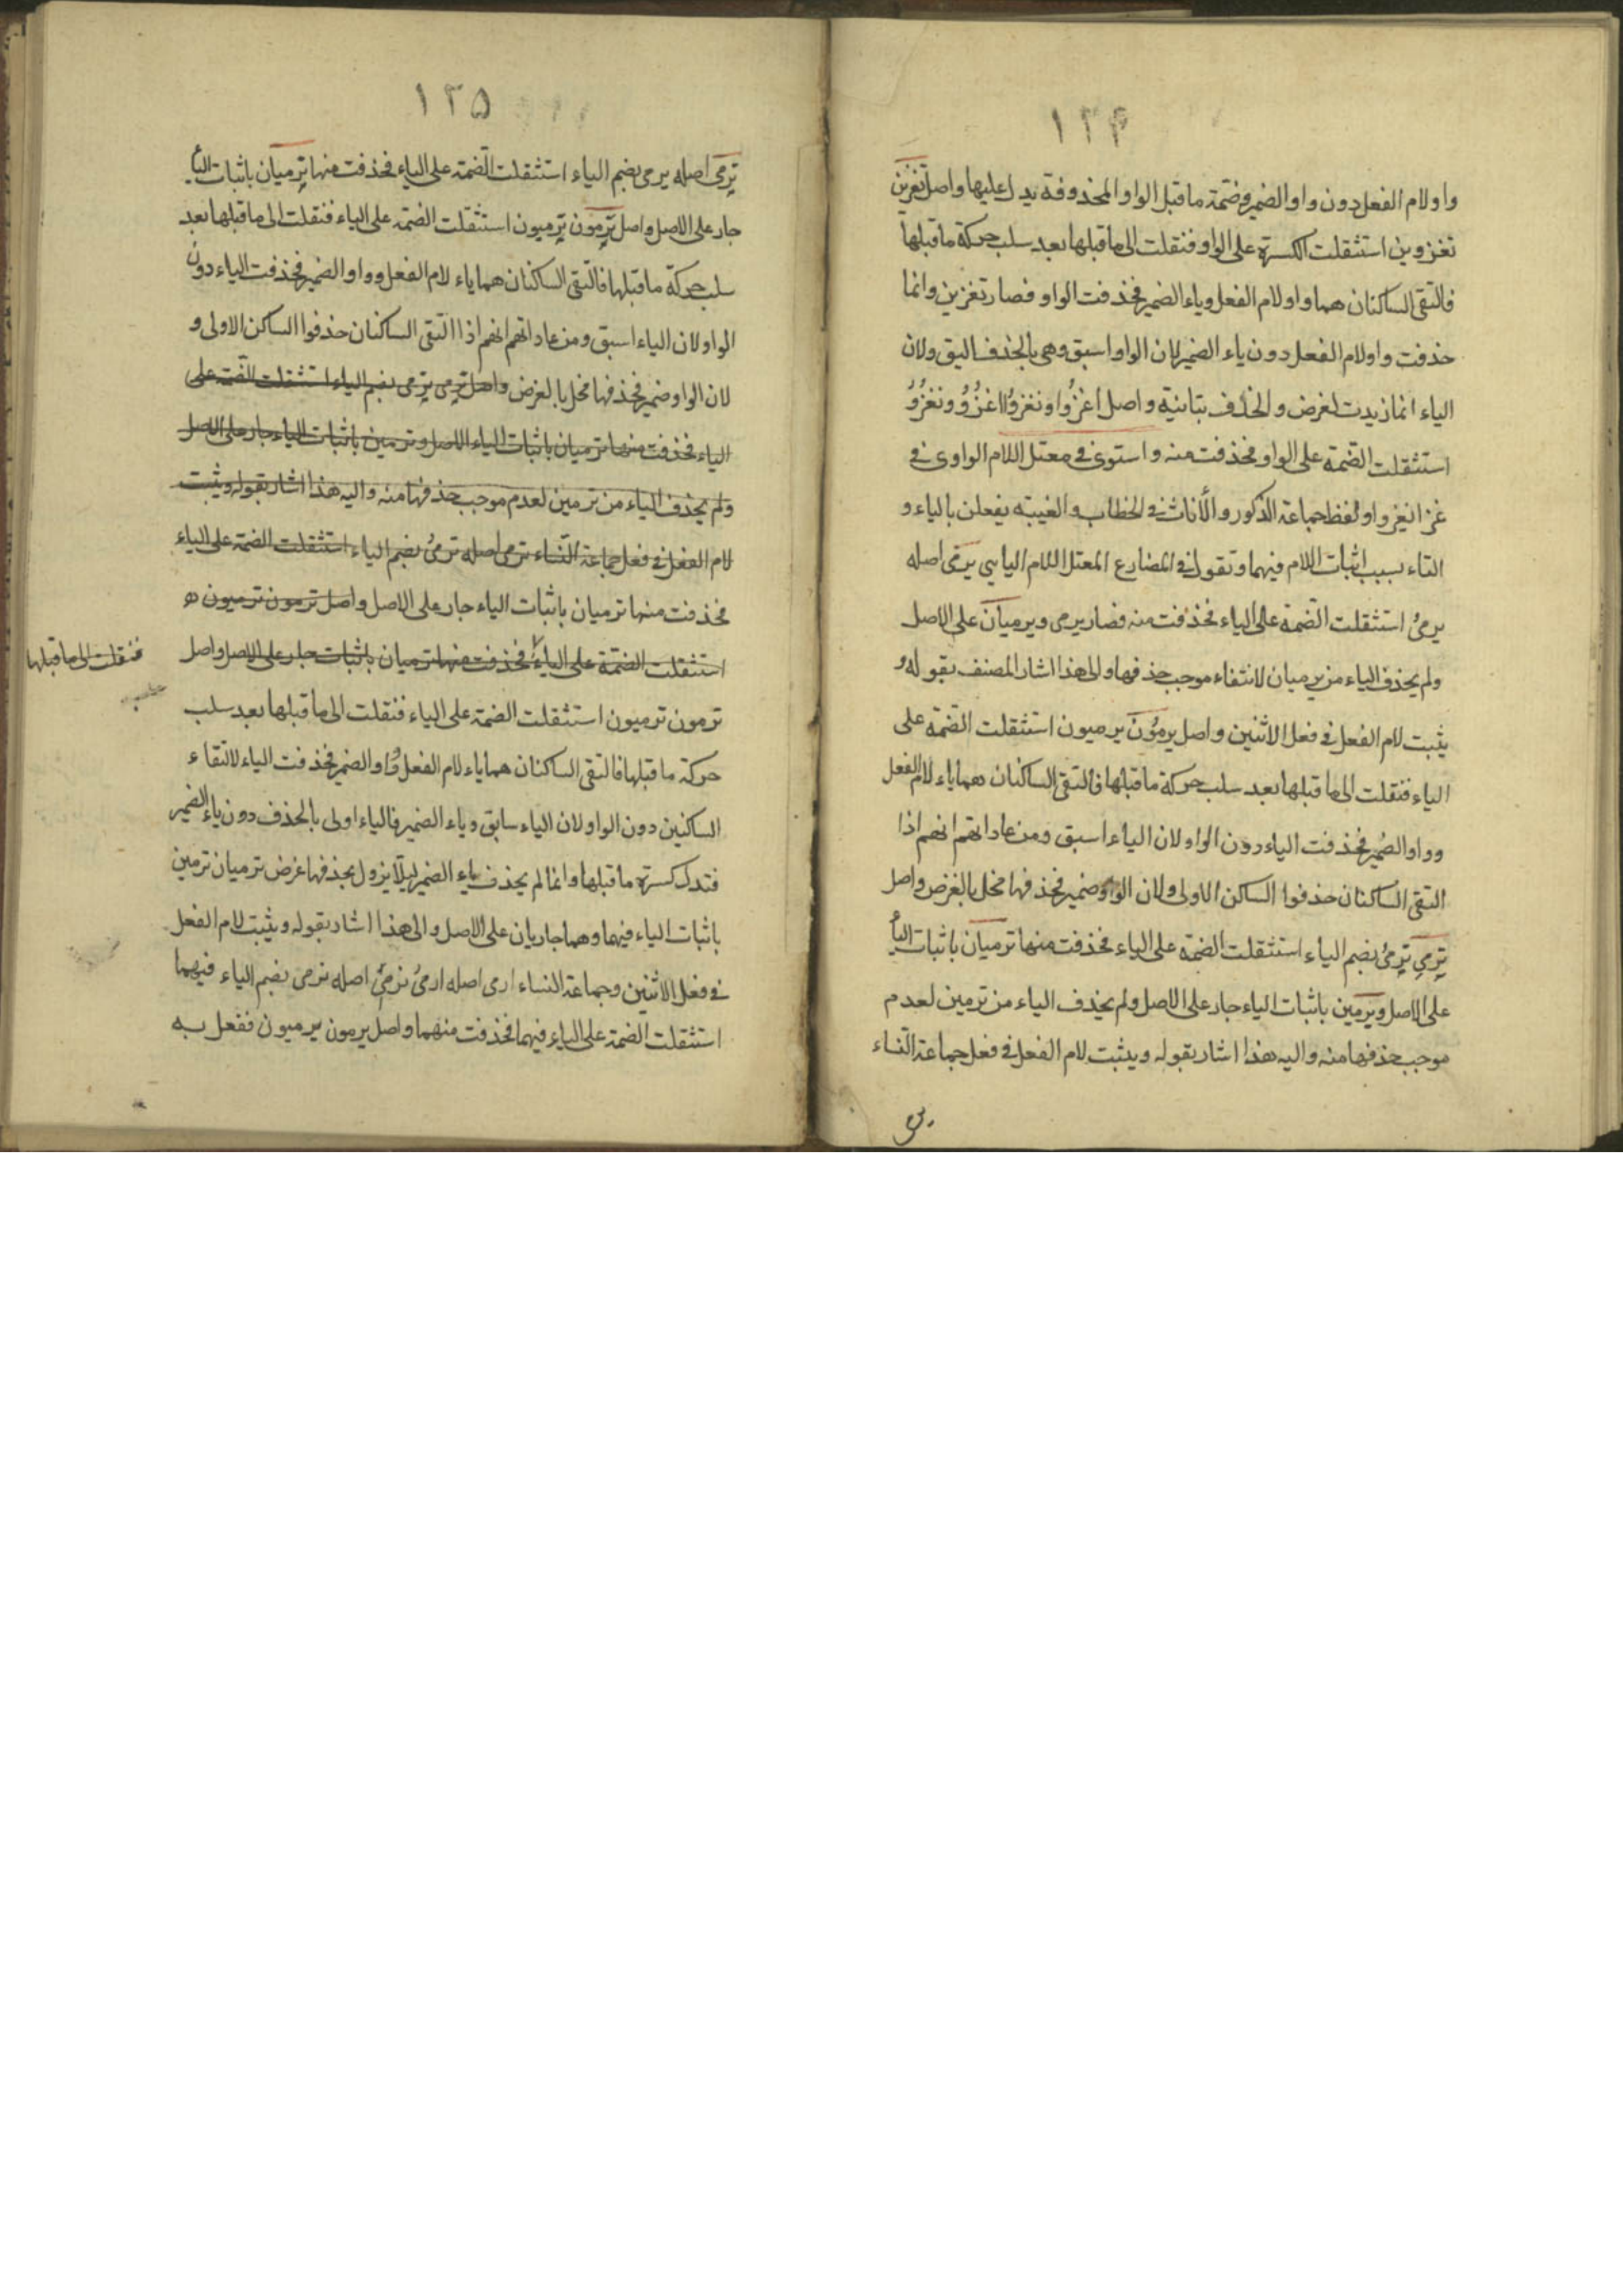 ١٣۴
واو لام الفعل دون واو الضمير وضمة ما قبل الواو المحذوفة يدل عليها واصل تغزين
تغزوين استثقلت الكسرة على الواو فنقلت الى ما قبلها بعد سلب حركة ما قبلها
فالتقى الساكنان هما واو لام الفعل وياء الضمير فحذفت الواو فصار تغزين وانما
حذفت واو لام الفعل دون ياء الضمير لان الواو اسبق وهى بالحذف اليق ولان
الياء انما زيدت لغرض والحذف يتانيه واصل اغزُوا ونغزوُا اغزُوُ ونغزُوُ
استثقلت الضمة على الواو فحذفت منه واستوى فى معتل اللام الواوى فى
غزا يغزوا ولفظ جماعة الذكور والأناث فى الخطاب والغيبة يفعلن بالياء و
التاء بسبب اثبات اللام فيهما وتقول فى المضارع المعتل اللام اليايى يرمى اصله
يرمىُ استثقلت الضمة على الياء فحذفت منه فصار يرمى ويرميان على الاصل
ولم يحذف الياء من يرميان لانتفاء موجب حذفها والى هذا اشار المصنف بقوله و
يثبت لام الفعل فى فعل الاثنين واصل يرمُون يرميون استثقلت الضمة على
الياء فنقلت الى ما قبلها بعد سلب حركة ما قبلها فالتقى الساكنان هما ياء لام الفعل
وواو الضمير فحذفت الياء دون الواو لان الياء اسبق ومن عاداتهم انهم اذا
التقى الساكنان حذفوا الساكن الاولى ولان الواو ضمير فحذفها مخل بالغرض واصل
ترمى ترمىُ بضم الياء استثقلت الضمة على الياء فحذفت منها ترميان باثبات الياء
على الاصل ويرمين باثبات الياء جار على الاصل ولم يحذف الياء من ترمين لعدم
موجب حذفها منه واليه هذا اشار بقوله ويثبت لام الفعل فى فعل جماعة النساء
١٣۵
ترمى اصله يرمى بضم الياء استثقلت الضمة على الياء فحذفت منها ترميان باثبات الياء
جار على الاصل واصل ترمون ترميون استثقلت الضمة على الياء فنقلت الى ما قبلها بعد
سلب حركة ما قبلها فالتقى الساكنان هما ياء لام الفعل وواو الضمير فحذفت الياء دون
الواو لان الياء اسبق ومن عاداتهم انهم اذا التقى الساكنان حذفوا الساكن الاولى و
لان الواو ضمير فحذفها مخل بالغرض واصل ترمى ترمى بضم الياء استثقلت الضمة على
الياء فحذفت منها ترميان باثبات الياء الاصل وترمين باثبات الياء جار على الاصل
ولم يحذف الياء من ترمين لعدم موجب حذفها منه واليه هذا اشار بقوله ويثبت
لام الفعل فى فعل جماعة النساء ترمى اصله ترمىُ بضم الياء استثقلت الضمة على الياء
فحذفت منها ترميان باثبات الياء جار على الاصل واصل ترمون ترميون
استثقلت الضمة على الياء فحذفت منها ترميان باثبات جار على الاصل واصل
فنقلت الى ما قبلها
ترمون ترميون استثقلت الضمة على الياء فنقلت الى ما قبلها بعد سلب
حركة ما قبلها فالتقى الساكنان هما ياء لام الفعل وواو الضمير فحذفت الياء لالتقاء
الساكنين دون الواو لان الياء سابق وياء الضمير فالياء اولى بالحذف دون ياء الضمير
فتدل كسرة ما قبلها وانما لم يحذف ياء الضمير ليلا يزول بحذفها غرض ترميان ترمين
باثبات الياء فيها وهما جاريان على الاصل والى هذا اشار بقوله ويثبت لام الفعل
فى فعل الاثنين وجماعة النساء ارمى اصله ارمىُ نرمى اصله نرمى بضم الياء فيهما
استثقلت الضمة على الياء فيهما فحذفت منهما واصل يرمون يرميون ففعل به